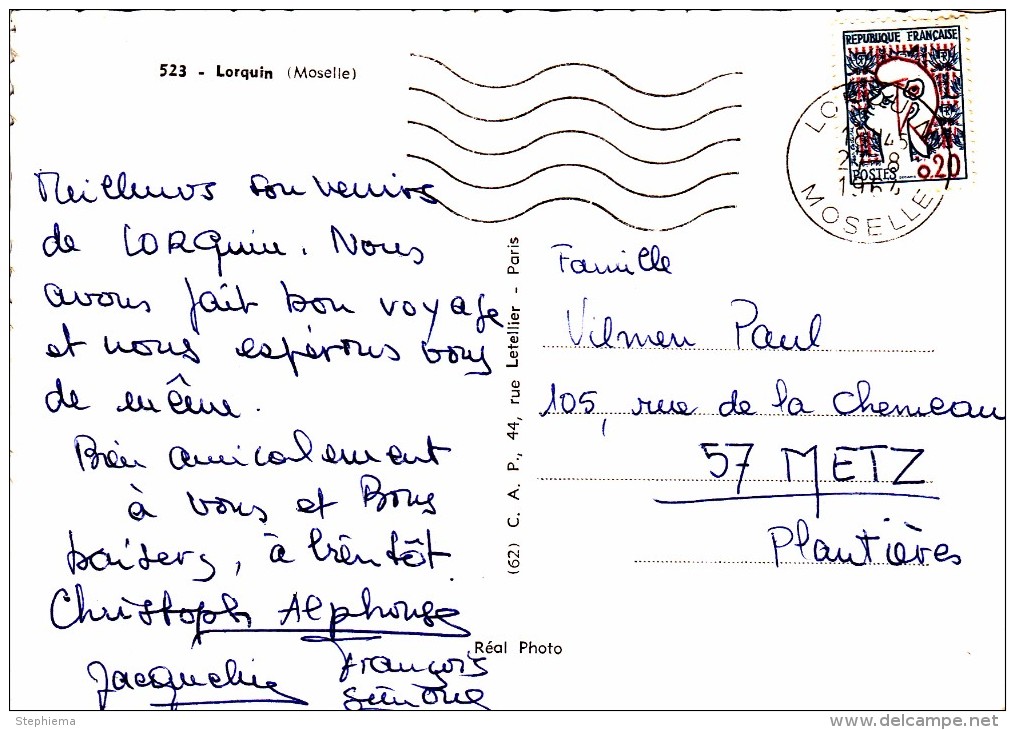 523 - Lorquin (Moselle)
REPUBLIQUE FRANÇAISE
POSTES
0.20
18 45
8
1964
MOSELLE
Meilleurs souvenirs
de LORQuin. Nous
avons fait bon voyage
et nous espérons vous
de même.
Bien amicalement
à vous et Bons
baisers, à bientôt.
Christoph Alphonse
Jacqueline François
Simone
(62) C. A. P., 44, rue Letellier - Paris
Réal Photo
Famille
Vilmen Paul
105, rue de la Cheneau
57 METZ
Plantières
Stephiema
delcampe.net